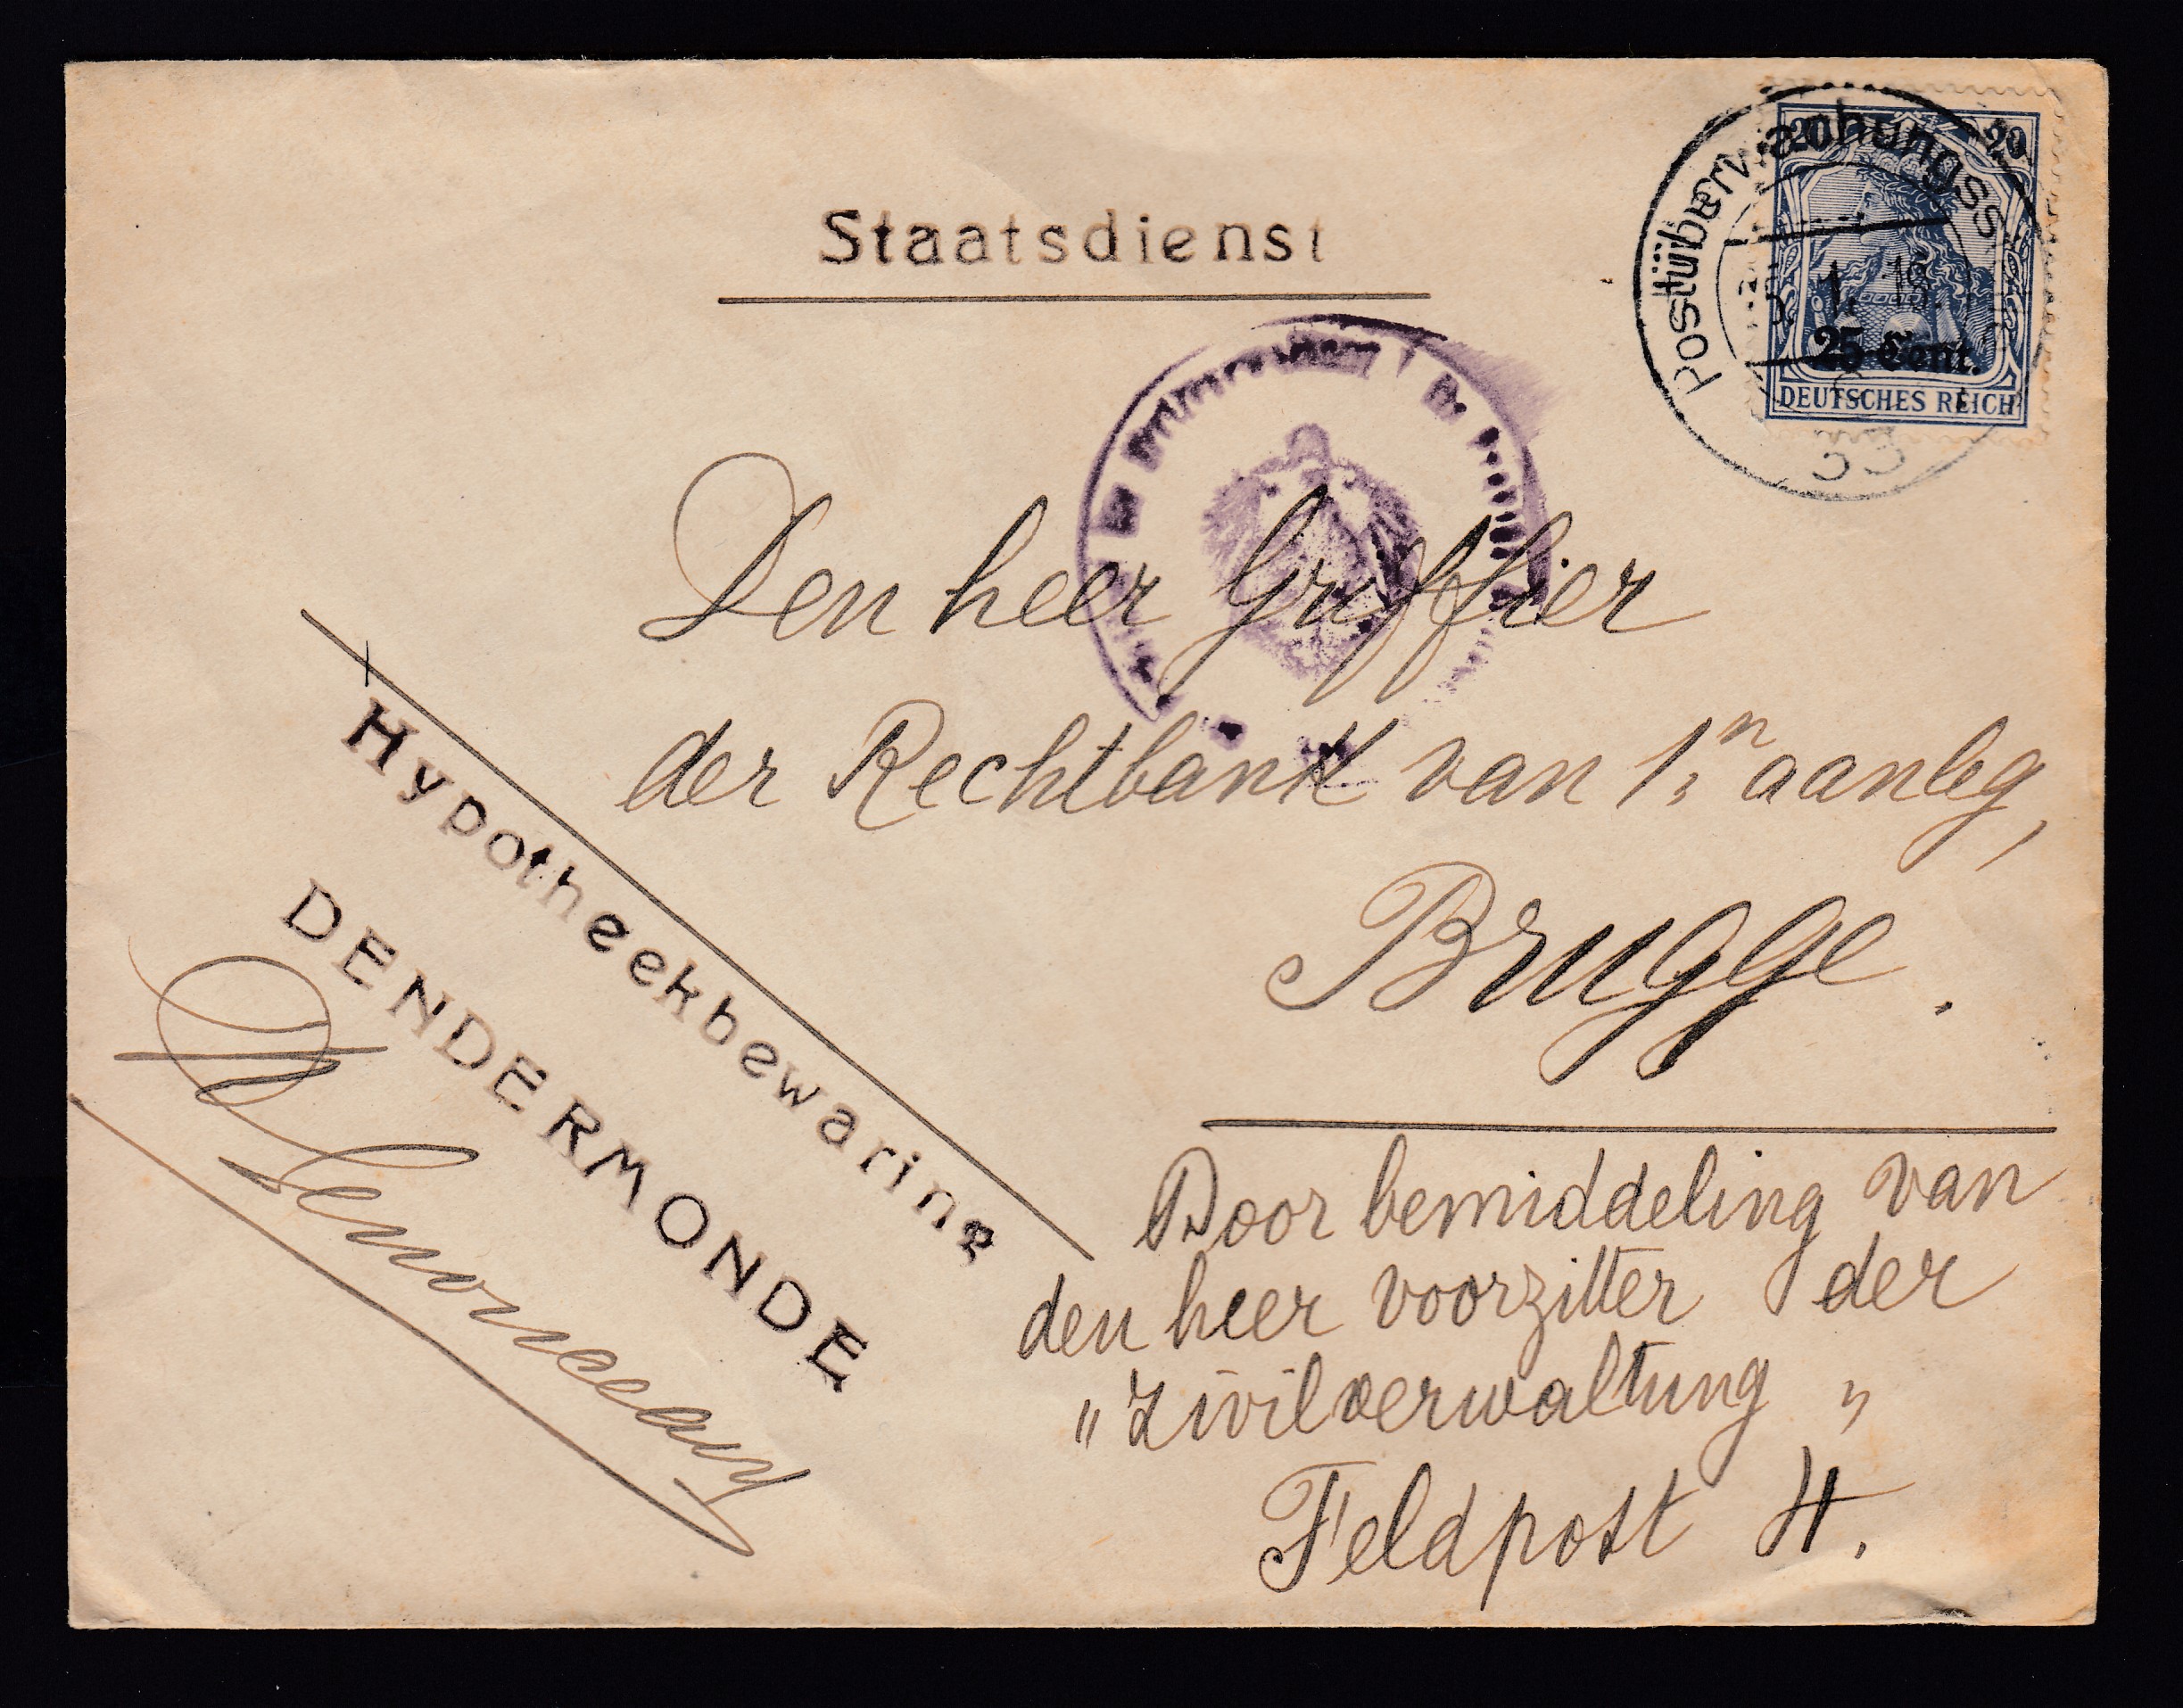 Staatsdienst
Postüberwachungss
20 20
1. 18.
25 Cent.
DEUTSCHES REICH
Den heer Griffier
der Rechtbank van 1n aanleg,
Brugge.
Hypotheekbewaring
DENDERMONDE
Door bemiddeling van
den heer voorzitter der
"Zivilverwaltung"
Feldpost H.